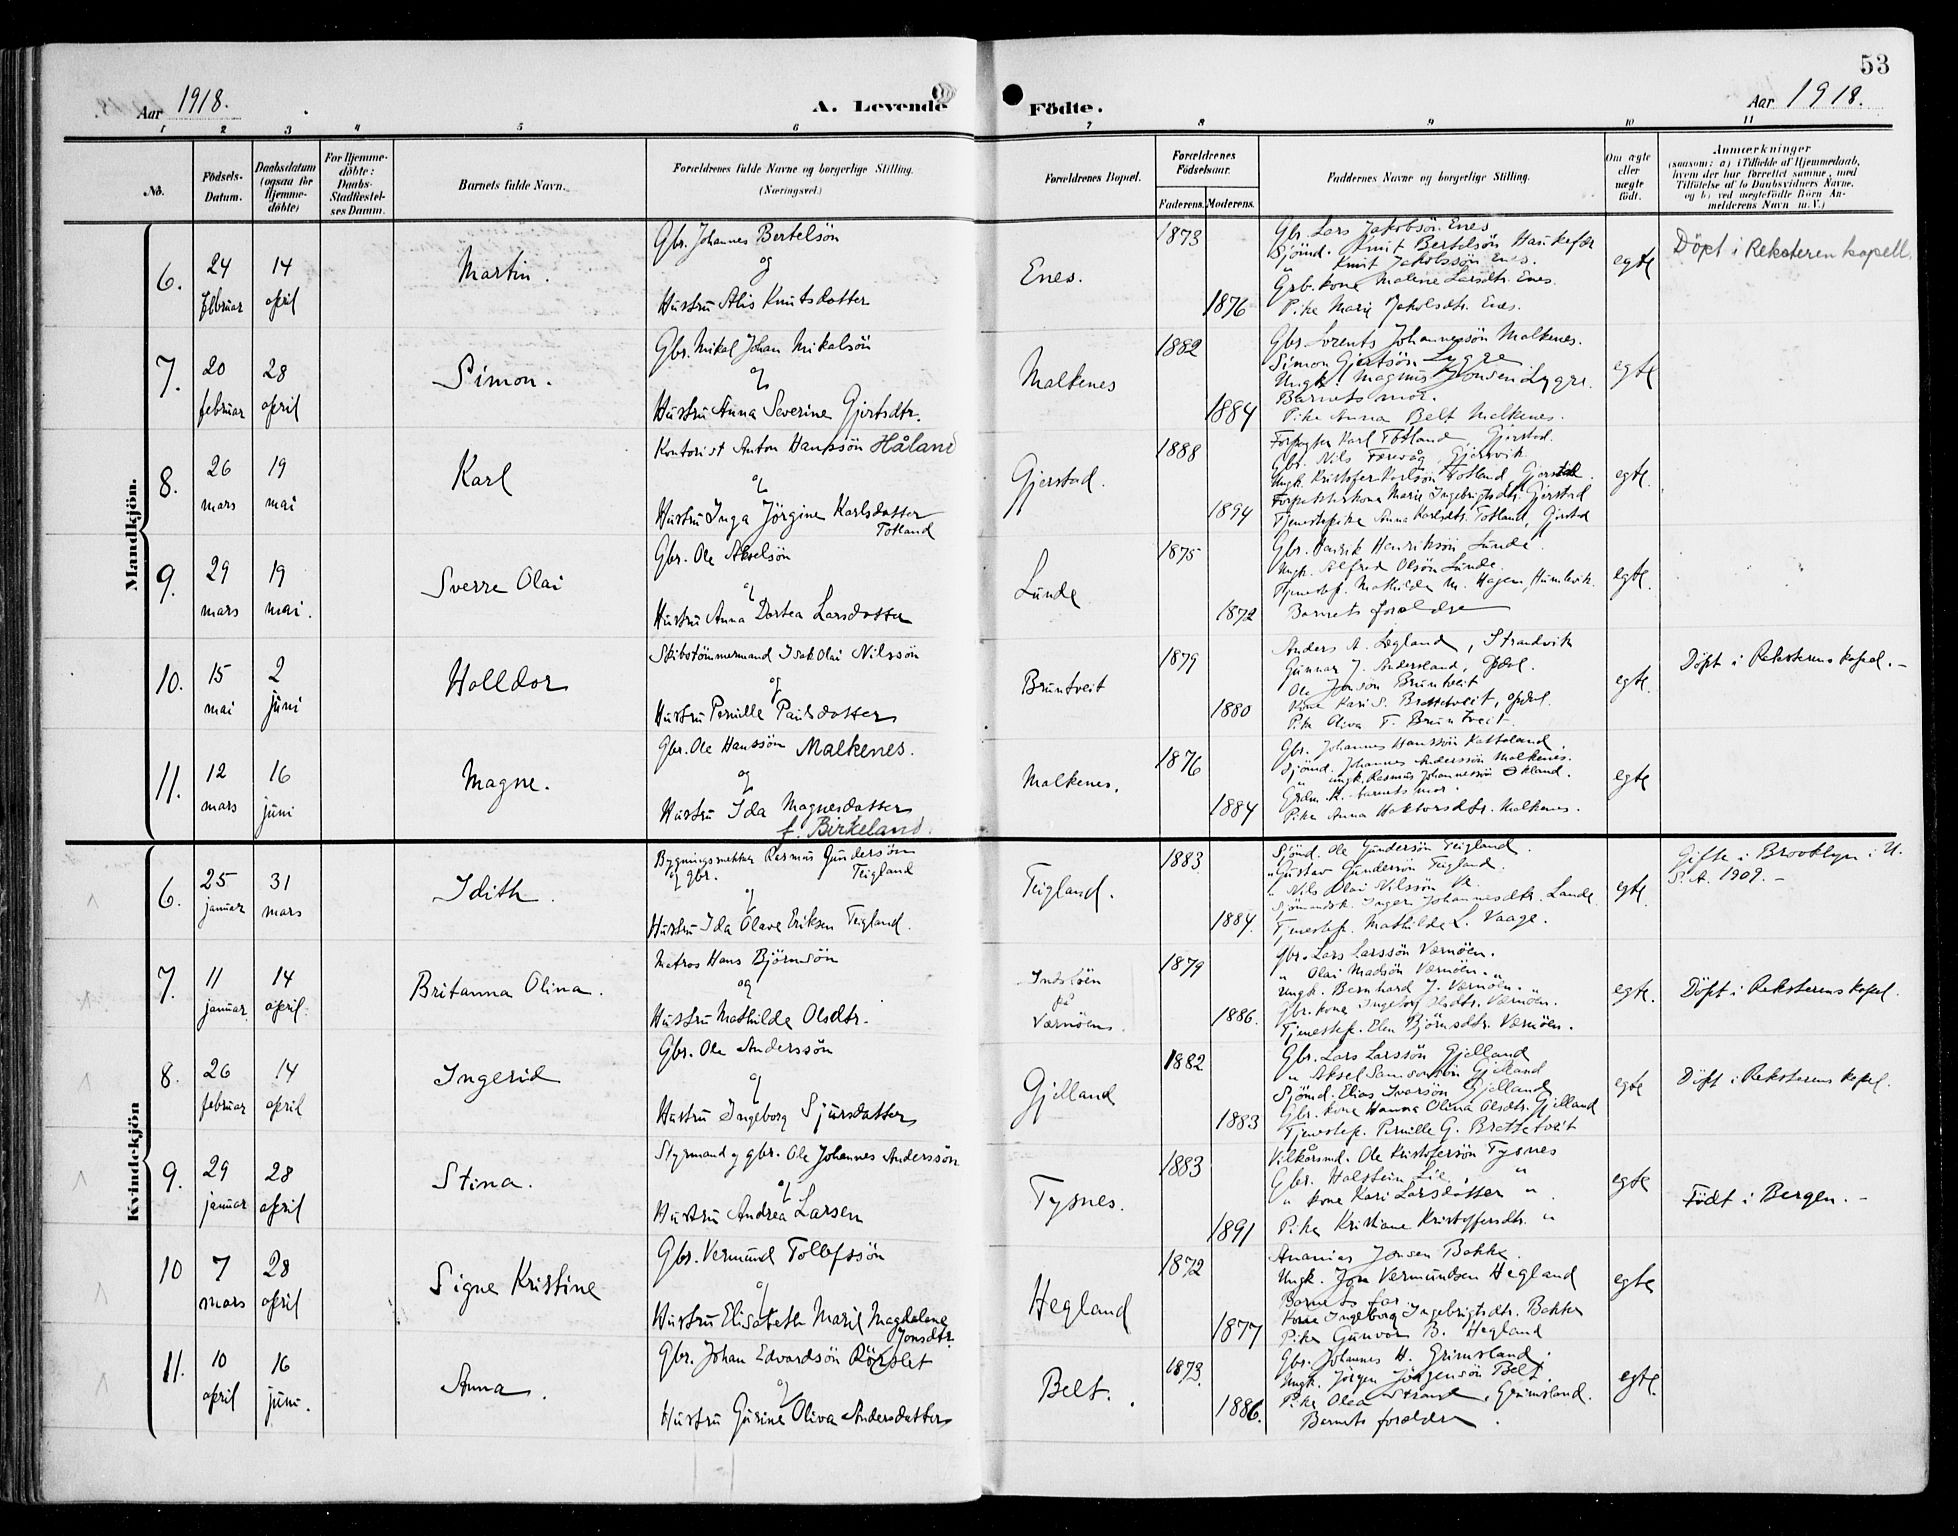 53
Aar 1918.
A. Levende Födte.
Aar 1918.
1 2 3 4 5 6 7 8 9 10 11
No.
Födsels-Datum.
Daabsdatum (ogsaa for Hjemme-döbte)
For Hjemme-döbte: Daabs-Stadfæstel-ses Datum.
Barnets fulde Navn.
Forældrenes fulde Navne og borgerlige Stilling.
(Næringsvei.)
Forældrenes Bopæl.
Forældrenes Födselsaar.
Faderens. Moderens.
Faddernes Navne og borgerlige Stilling.
Om ægte eller uægte födt.
Anmærkninger
(saasom: a) i Tilfælde af Hjemmedaab, hvem der har forrettet samme, med Tilföielse af to Daabsvidners Navne, og b) ved uægtefödte Börn An-melderens Navn m. V.)
Mandkjön.
6.
24 februar
14 april
Martin.
Gbr. Johannes Bertelsön
og
Hustru Alis Knutsdatter
Enes.
1873
1876
Gbr. Lars Jakobsön Enes
Sjömd. Knut Bertelsön Haukefær
" Knut Jakobssön Enes.
Grb. kone Maline Larsdtr. Enes.
Pike Marie Jakobsdtr. Enes.
egte
Döpt i Reksteren kapell.
7.
20 februar
28 april
Simon.
Gbr. Mikal Johan Mikalsön
og
Hustru Anna Severine Gjertsdtr.
Malkenes
1882
1884
Gbr. Lorents Johannessön Malkenes.
Simon Gjertsön Lygre
Ungk. Magnus Lygre.
Barnets mor.
Pike Anna Belt Malkenes.
egte
8.
26 mars
19 mai
Karl
Kontorist Anton Hanssön Håland
og
Hustru Inga Jörgine Karlsdatter
Totland
Gjerstad.
1888
1894
Forpagter Karl Totland, Gjerstad.
Gbr. Nils Færevåg, Gjersvik
Ungk. Kristofer Karlsön Totland, Gjerstad.
Forpakterkone Marie Ingebrigtsdtr. Gjerstad
Tjenestepike Anna Karlsdtr. Totland, Gjerstad
egte.
9.
29 mars
19 mai.
Sverre Olai
Gbr. Ole Akselsön
og
Hustru Anna Dortea Larsdatter
Lunde
1875
1872
Gbr. Henrik Henriksön Lunde.
Ungk. Alfred Olsön Lunde.
Tjenestep. Mathilde M. Hagen, Humlevik.
Barnets forældre
egte.
10.
15 mai
2 juni
Halldor
Skibstömmermand Isak Olai Nilssön
og
Hustru Pernille Paulsdatter
Bruntveit
1879
1880
Anders A. Legland, Strandvik
Gunnar J. Andersland, Opdal.
Ole Jonsön Bruntveit
Kone Kari S. Brattetveit, opdal.
Pike Oliva T. Bruntveit.
egte.
Döpt i Reksterens kapel. –
11.
12 mars
16 juni
Magne.
Gbr. Ole Hanssön Malkenes.
og
Hustru Ida Magnesdatter
f. Birkeland.
Malkenes.
1876
1884
Gbr. Johannes Hanssön Katteland.
Sjömd. Johannes Anderssön Malkenes.
" ungk. Rasmus Johannessön
Grdm. k. barnets mor.
Pike Anna Malkenes.
egte
Kvindekjön
6.
25 januar
31 mars
Idith.
Rasmus Gundersön
og gbr. Teigland
og
Hustru Ida Olave Eriksen Teigland.
Teigland.
1883
1884.
Sjömd. Ole Gundersön Teigland.
" Gustav Gundersön Teigland.
" Nils Olai Nilssön
Sjömandsk. Inger Johannesdtr. Lande
Tjenestep. Mathilde L. Vaage.
egte.
Gifte i Brooklyn i U.
S. A. 1909. –
7.
11 januar
14 april.
Britanna Olina.
Matros Hans Björnsön
og
Hustru Mathilde Olsdtr.
på
Værnöen.
1879
1886.
Gbr. Lars Larssön Værnöen.
" Olai Madsön Værnöen. "
Ungk. Bernhard J. Værnöen. "
Gbr. kone Ingeborg Olsdtr. Værnöen.
Tjenestep. Elen Björnsdtr. Værnöen.
egte.
Döpt i Reksterens kapel.
8.
26 februar
14 april
Ingerid
Gbr. Ole Anderssön
og
Hustru Ingeborg Sjursdatter
Gjelland
1882
1883
Gbr. Lars Larssön Gjelland
" Aksel Samsonsön Gjelland
Sjömd. Elias Ivarsön Gjelland
Gbr. kone Hanna Olina Olsdtr. Gjelland
Tjenestep. Pernille G. Brattetveit
egte
Döpt i Reksterens kapel.
9.
29 januar
28 april
Stina.
Styrmand og gbr. Ole Johannes Anderssön
og
Hustru Andrea Larsen
Tysnes.
1883
1891
Vilkårsmd. Ole Kristofersön Tysnes
Gbr. Halstein Lie, "
" kone Kari Larsdatter "
Pike Kristiane Kristoffersdtr. "
egte
Födt i Bergen. –
10
7 mars
28 april
Signe Kristine
Gbr. Vermund Tollefssön
og
Hustru Elisabeth Marie Magdalene
Jonsdtr.
Hegland
1872
1877
Ananias Jonsen Bakke.
Ungk. Jon Vermundsen Hegland
Barnets far.
Kone Ingeborg Ingebrigtsdtr. Bakke
Pike Gunvor B. Hegland
egte
11.
10 april
16 juni.
Anna.
Gbr. Johan Edvardsön Rörslet
og
Hustru Gurine Oliva Andersdatter
Belt.
1873.
1886.
Gbr. Johannes H. Grimsland.
Ungk. Jörgen Jörgensön Belt.
Pike Olea Strand, Grimsland.
Barnets forældre.
egte.